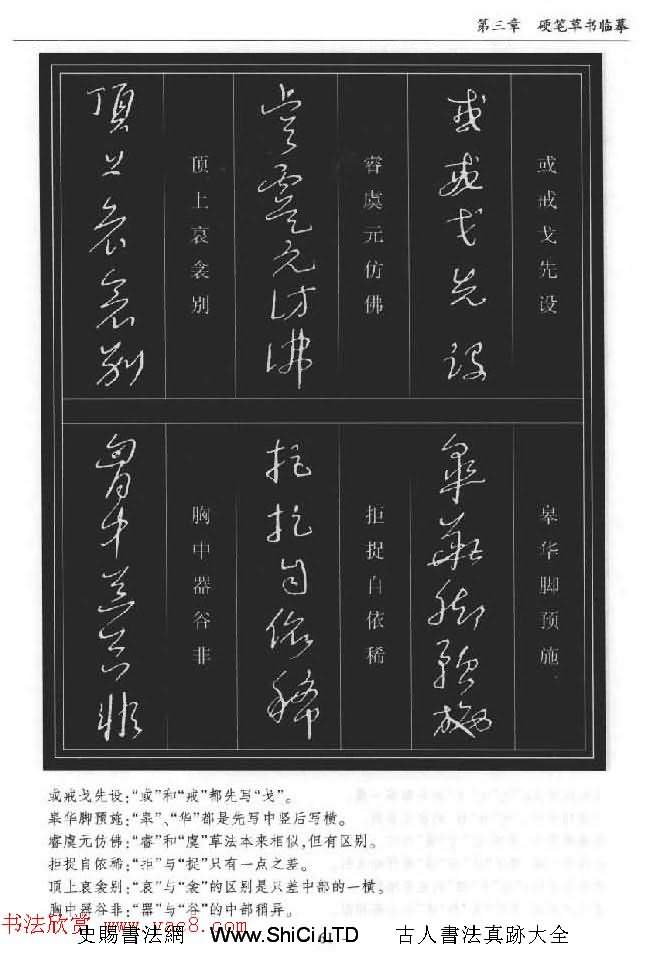 第三章 硬笔草书临摹
或戒戈先设
或戒戈先設
睿虞元仿佛
睿虞元仿佛
顶上哀衾别
頂上哀衾別
皋华脚预施
皋華脚預施
拒捉自依稀
拒捉自依稀
胸中器谷非
胸中器谷非
或戒戈先设:“或”和“戒”都先写“戈”。
皋华脚预施:“皋”、“华”都是先写中竖后写横。
睿虞元仿佛:“睿”和“虞”草法本来相似,但有区别。
拒捉自依稀:“拒”与“捉”只有一点之差。
顶上哀衾别:“哀”与“衾”的区别是只差中部的一横。
胸中器谷非:“器”与“谷”的中部稍异。
书法欣赏 www.yac8.com
史賜書法網 Www.ShiCi.LTD 古人書法真跡大全